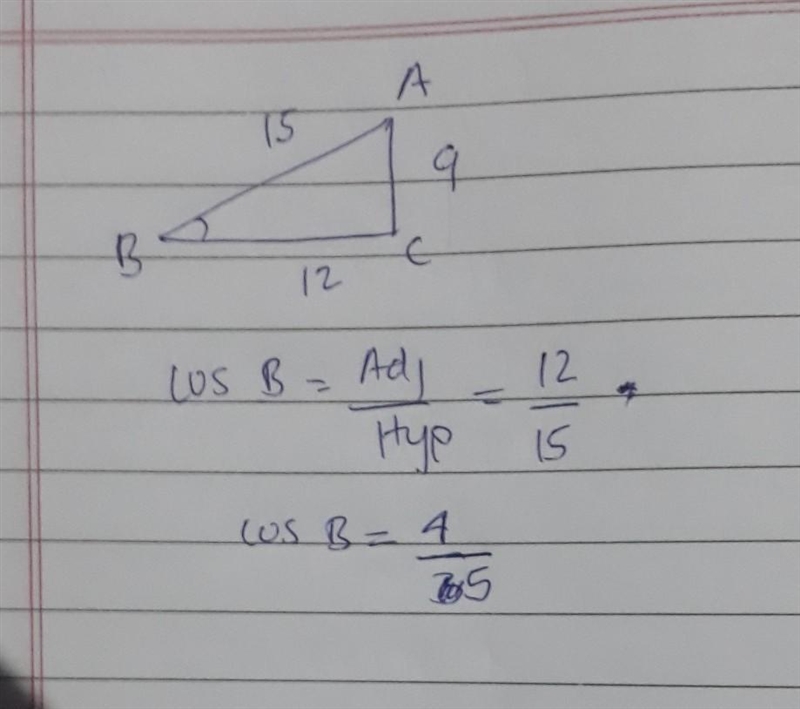 A
15
9
B
C
12
cos B = Adj / Hyp = 12 / 15
cos B = 4 / 5